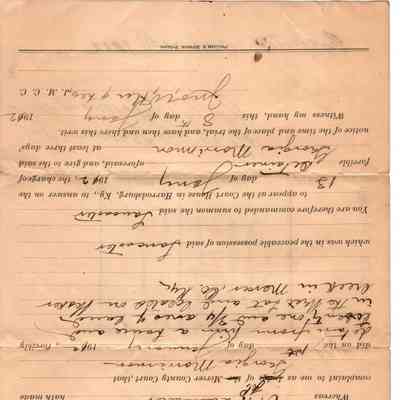 Whereas
hath made
complaint to me as of Mercer County Court, that
Georgia Morrison
did on the 1st day of January 1902, forcibly
detain from him a house and
twenty one and 3/4 acres of land
Creek in Mercer Co. Ky.
which was in the peaceable possession of said Lancaster
You are therefore commanded to summon the said Lancaster
to appear at the Court House in Harrodsburg, Ky., to answer on the
13 day of Jany 1902, the charge of
forcible detainer aforesaid, and give to the said
Georgia Morrison at least three days'
notice of the time and place of the trial, and have then there this writ.
Witness my hand, this 8th day of Jany 1902
J. M. C. C.